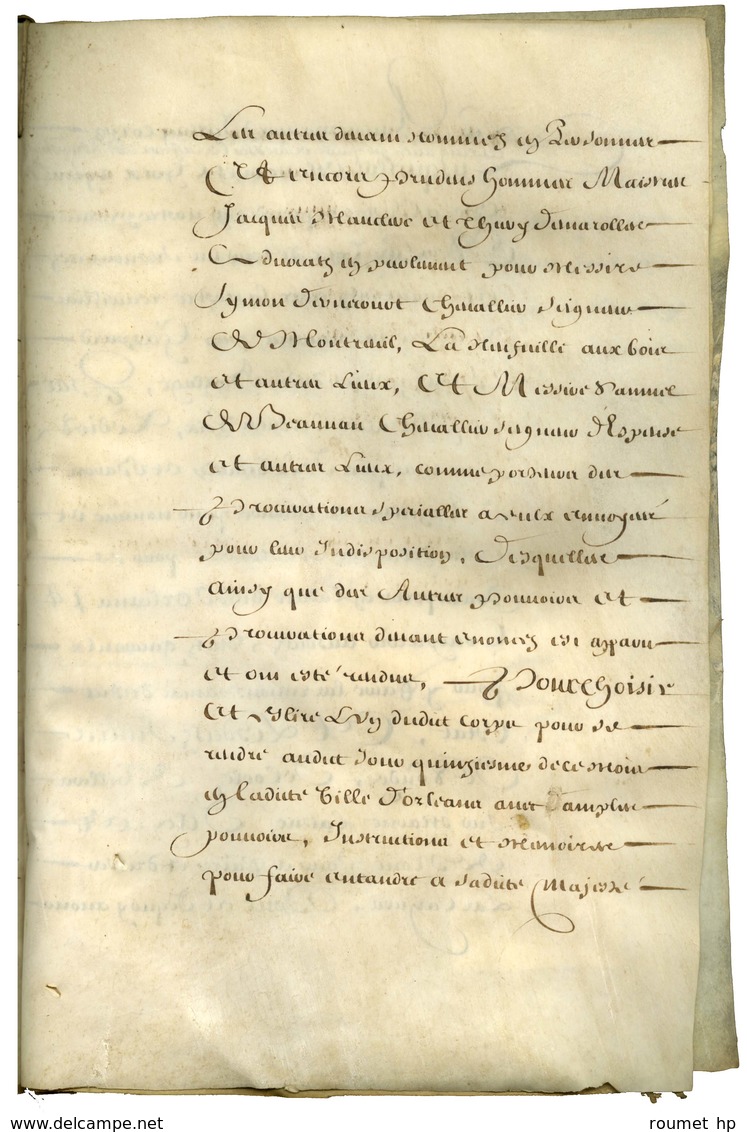 Les autres devant nommez en Personnes
Et encores Prudens hommes Maistres
Jacques Mauclerc et Thierry Demarolles
Advocatz en parlement pour Messire
Symon Chevallier Seigneur
De Montreuil, La Neufville aux bois
et autres Lieux, Et Messire Samuel
De Beauvau Chevallier seigneur d'Espense
et autres Lieux, comme porteurs des
Procurations specialles a eulx envoyées
pour leur Indisposition, Desquelles
ainsy que des Autres pouvoirs et
Procurations devant enoncez est apparu
et ont esté rendues, Pour choisir
et Eslire L'un dudict corps pour se
rendre audict Jour quinziesme de ce mois
en ladicte Ville D'orleans avec amples
pouvoirs, Instructions et Memoires
pour faire entendre a sadicte Majesté
www.delcampe.net
roumet hp